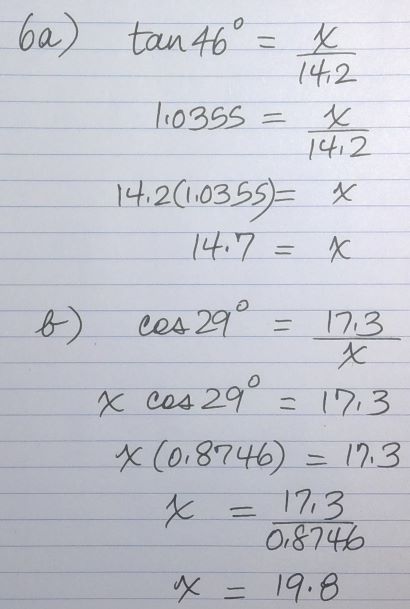 6a) tan 46° = x/14.2
1.0355 = x/14.2
14.2(1.0355) = x
14.7 = x
b) cos 29° = 17.3/x
x cos 29° = 17.3
x (0.8746) = 17.3
x = 17.3/0.8746
x = 19.8